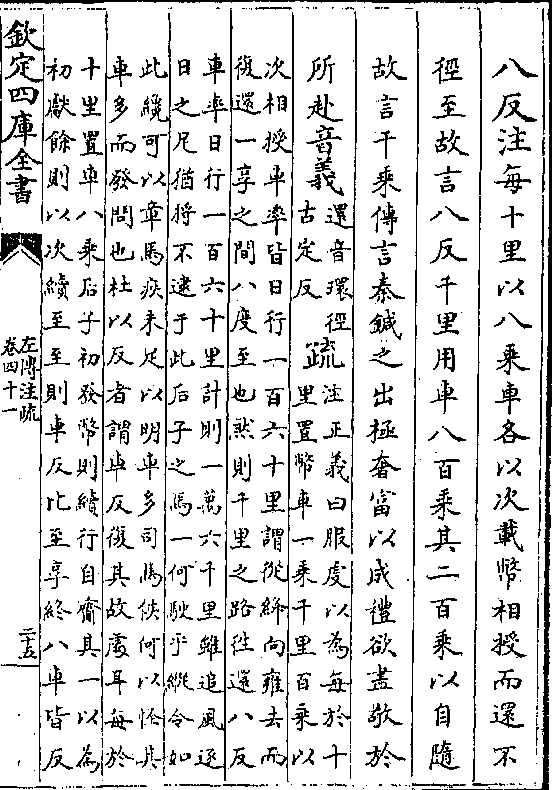 八反注每十里以八乘車各以次載幣相授而還不
徑至故言八反千里用車八百乘其二百乘以自隨
故言千乘傳言秦鍼之出極奢富以成禮欲盡敬於
所赴音義還音環徑古定反疏注正義曰服虔以為每於十里置幣車一乘千里百乘以
次相授車率皆日行一百六十里謂從絳向雍去而
復還一享之間八度至也然則千里之路往還八反
車率日行一百六十里計則一萬六千里雖追風逐
日之足猶將不逮于此后子之馬一何駛乎縱令如
此纔可以章馬疾未足以明車多司馬侯何以怪其
車多而發問也杜以反者謂車反復其故處耳每於
十里置車八乘后子初發幣則續行自齎其一以為
初獻餘則以次續至至則車反比至享終八車皆反
欽定四庫全書
左傳注疏
卷四十一
二十五